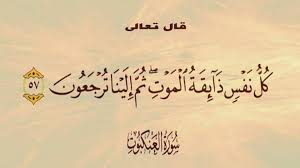 قال تعالى
كُلُّ نَفْسٍ ذَآئِقَةُ ٱلْمَوْتِ ۖ ثُمَّ إِلَيْنَا تُرْجَعُونَ ٥٧
سُورَةُ العَنكَبُوتِ